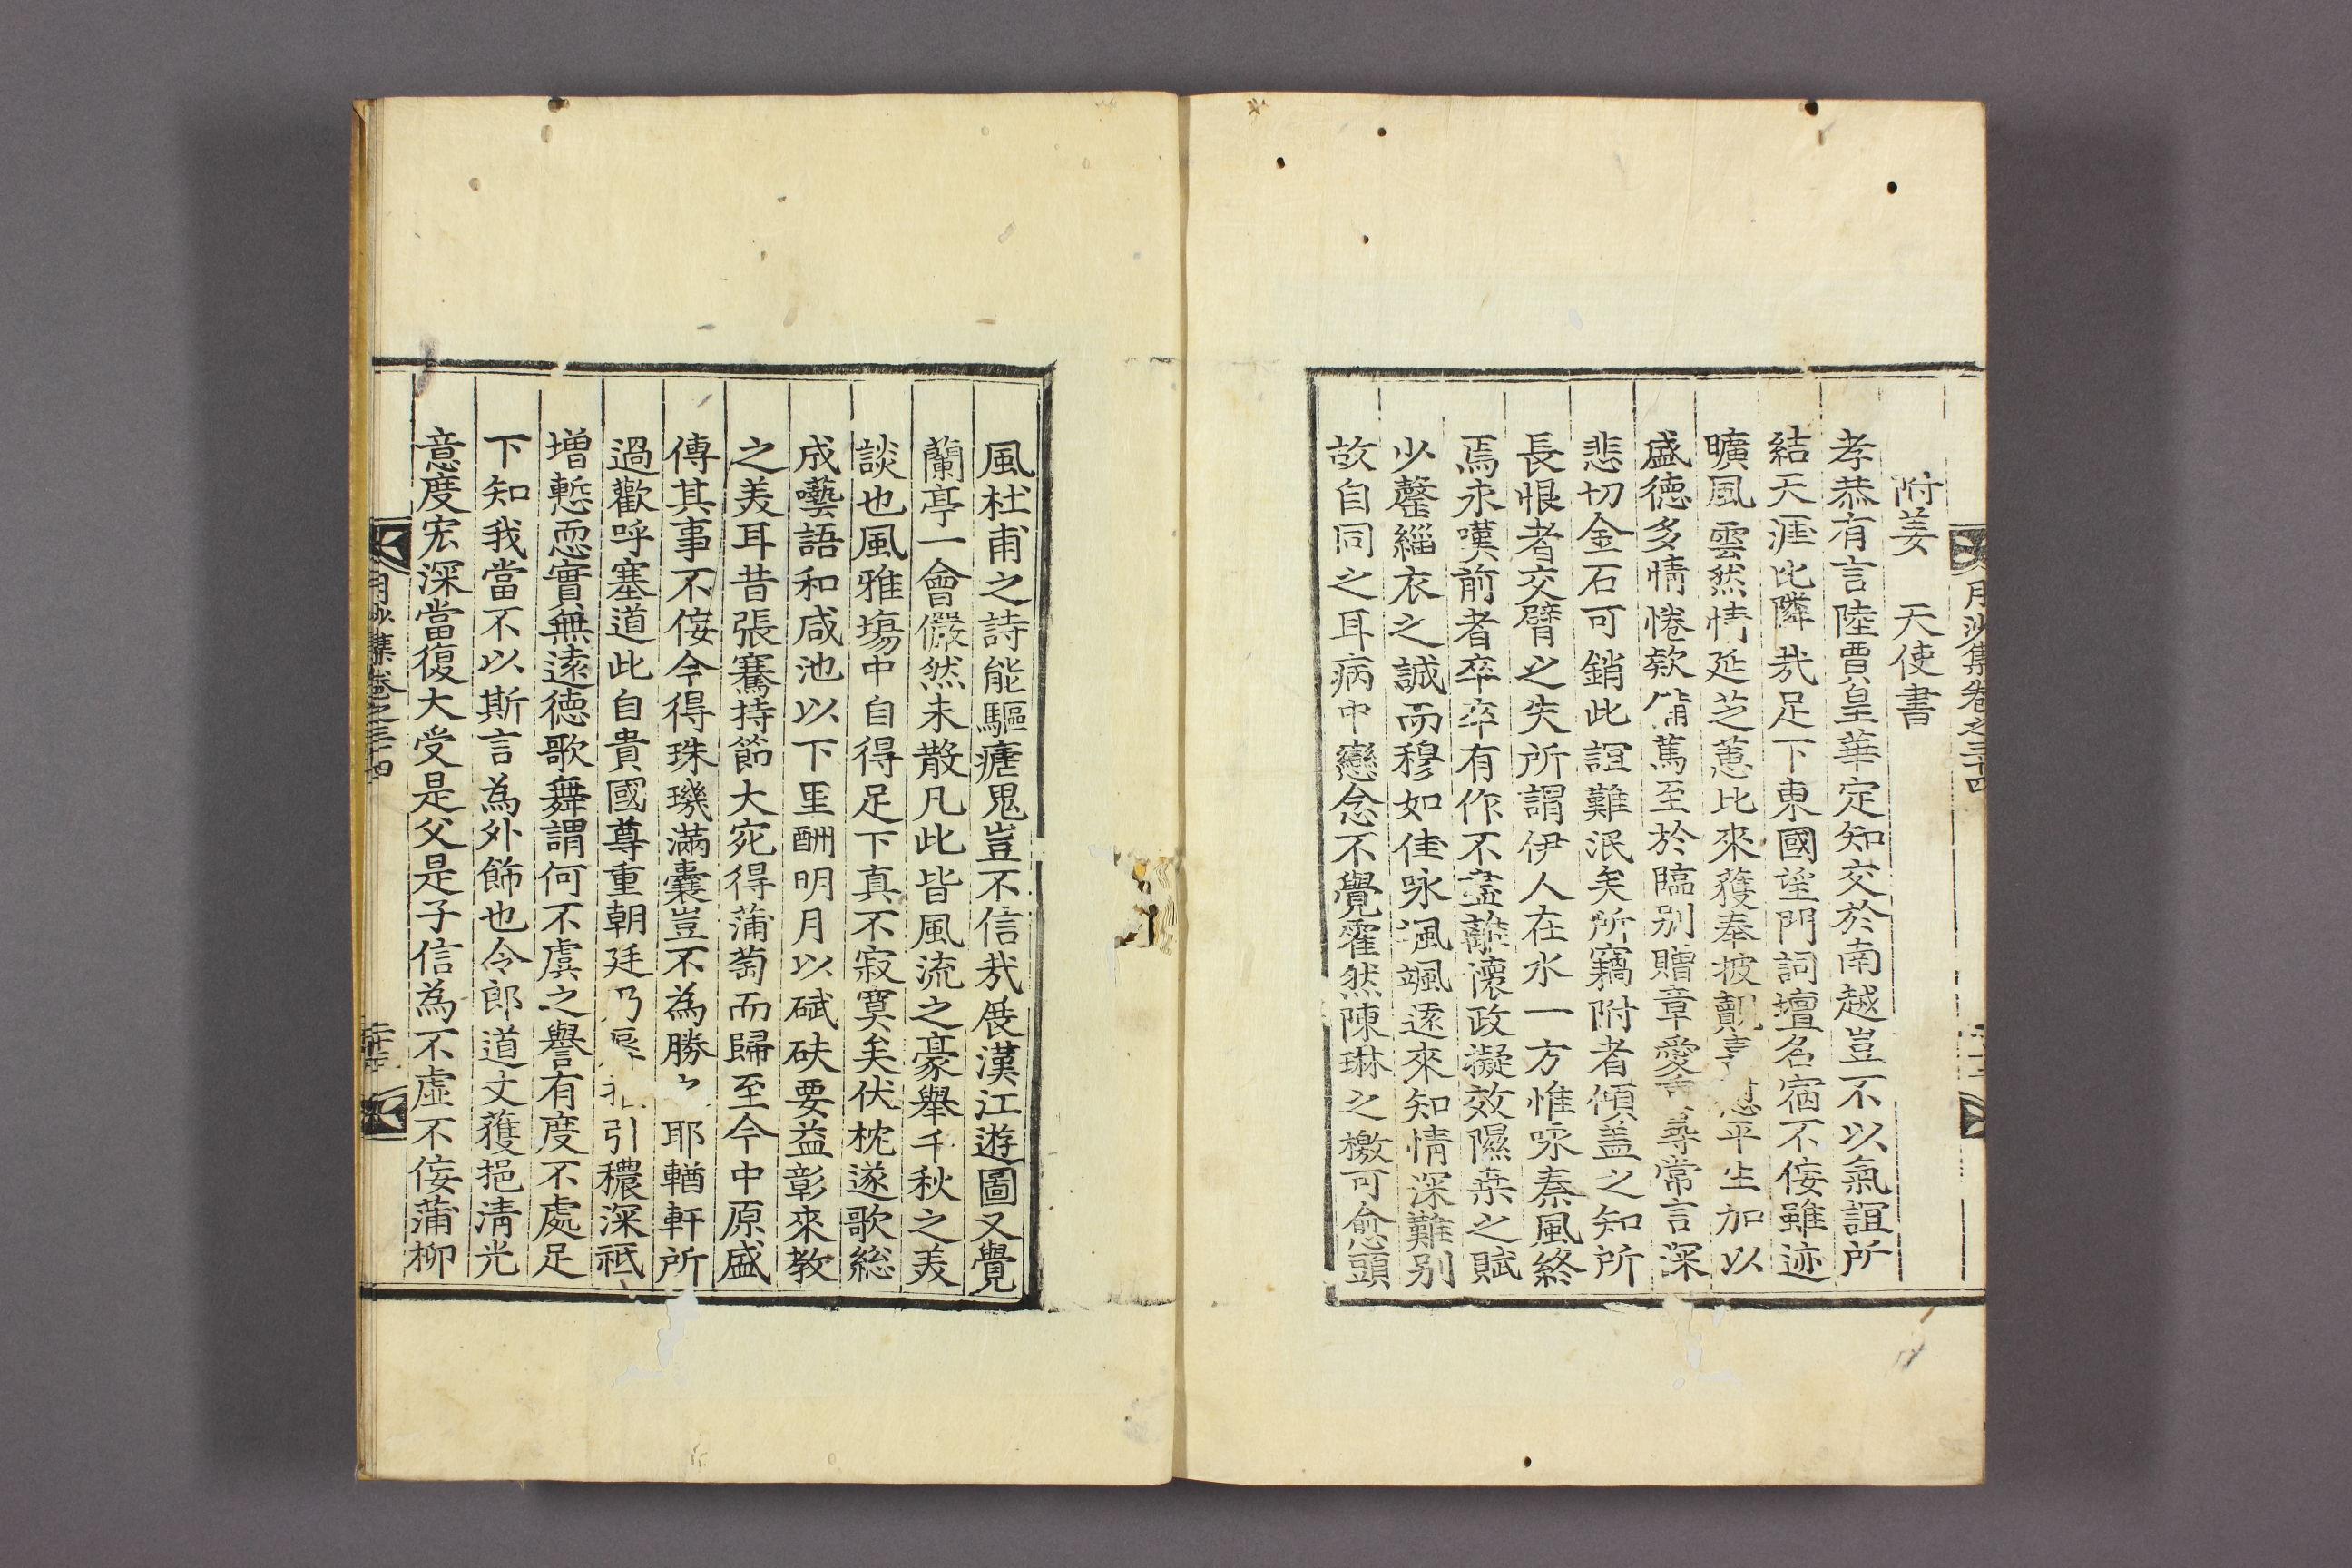 月沙集卷之三十四
附姜 天使書
孝恭有言陸賈皇華定知交於南越豈不以氣誼所
結天涯比隣㢤足下東國望門詞壇名宿不侫雖迹
曠風雲然情延芝蕙比來獲奉披 平生加以
盛德多情惓欵 篤至於臨別贈章愛 尋常言深
悲切金石可銷此誼難泯矣所竊附者傾盖之知所
長恨者交臂之失所謂伊人在水一方惟咏秦風終
焉永嘆前者卒卒有作不盡離懷政擬效隰桒之賦
少罄緇衣之誠而穆如佳咏渢颯逐來知情深難別
故自同之耳病中戀念不覺霍然陳琳之檄可愈頭
風杜甫之詩能驅瘧鬼豈不信㢤展漢江遊圖又覺
蘭亭一會儼然未散凡此皆風流之豪舉千秋之美
談也風雅塲中自得足下真不寂寞矣伏枕遂歌総
成囈語和咸池以下里酬明月以碔砆要益彰來教
之美耳昔張騫持節大宛得蒲萄而歸至今中原盛
傳其事不侫今得珠璣滿囊豈不為勝 耶輶軒所
過歡呼塞道此自貴國尊重朝廷乃 引穠深祗
增慙恧實無逺德歌舞謂何不虞之譽有度不處足
下知我當不以斯言為外飾也令郎道丈獲挹清光
意度宏深當復大受是父是子信為不虛不侫蒲柳
月沙集卷之三十四
二十三